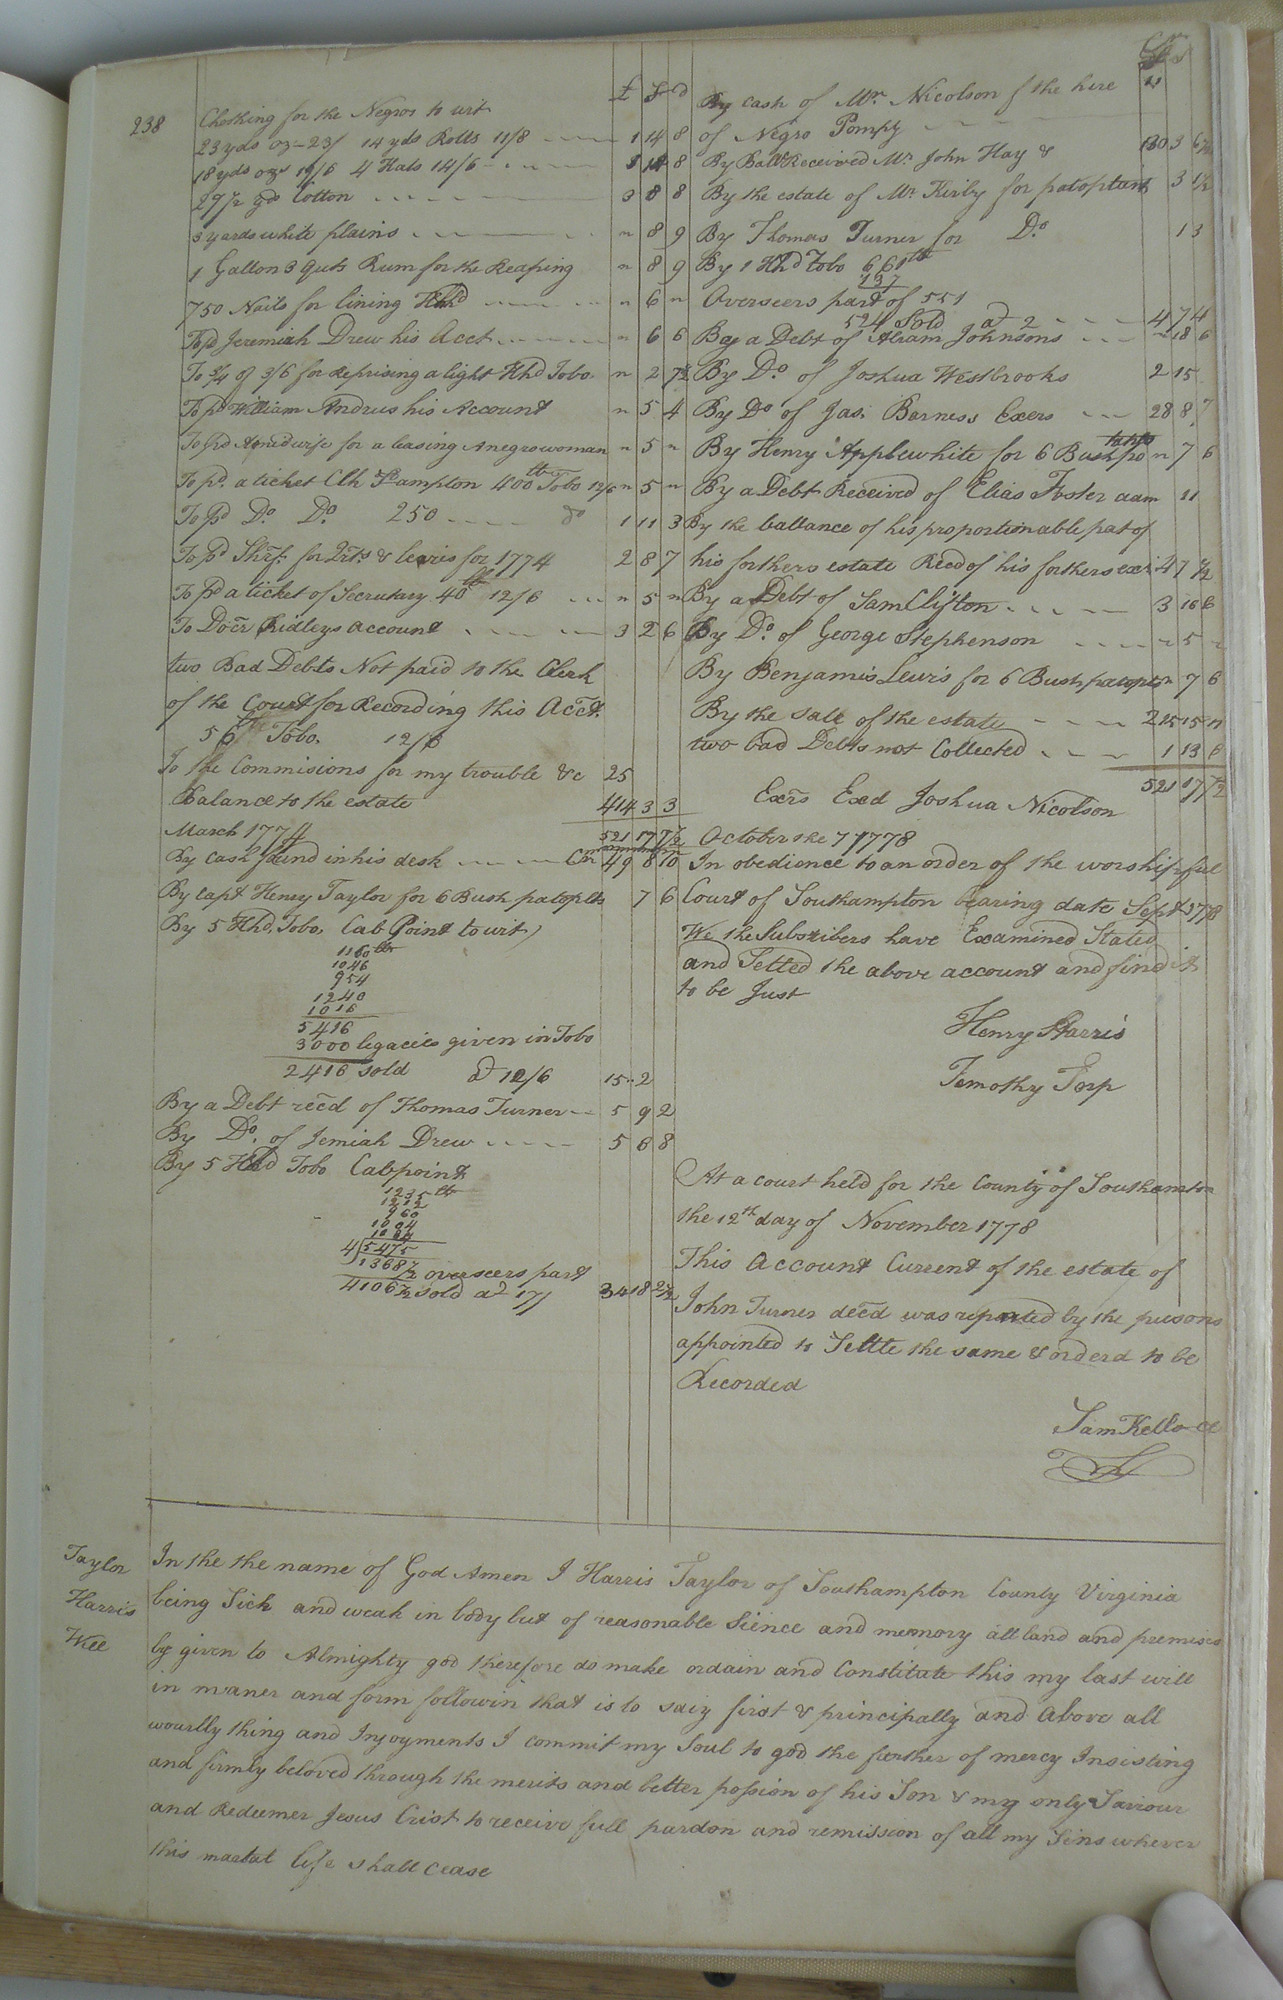 238
Clothing for the Negros to wit
23 yds ozs 23/ 14 yds Rolls 11/8 1 14 8
18 yds ozs 19/6 4 Hats 14/6 1 14 8
29 1/2 yds Cotton 3 8 8
3 yards white plains " 8 9
1 Gallon 3 quts Rum for the Reaping " 8 9
750 Nails for lining Hhd " 6 "
To pd Jeremiah Drew his Acct " 6 6
To 3/4 of 3/6 for Reprising a light Hhd Tobo " 2 7 1/2
To pd William Andrus his Account " 5 4
To pd A midwife for a leasing A negro woman " 5 "
To pd. a ticket Clk S hampton 400 lb Tobo 12/6 " 5 "
To pd Do. Do. 250 do 1 11 3
To pd Shrf. for Qrts & leavis for 1774 2 8 7
To pd a ticket of Secrutary 40 lb 12/6 " 5 "
To Docr Ridleys Account 3 2 6
two Bad Debts Not paid to the Clerk
of the Court for Recording this Acct.
56 lb Tobo. 12/6
To the Commisions for my trouble &c 25
Balance to the estate 414 3 3
521 17 7 1/2
March 1774
By cash found in his desk Cr 49 8 10
By Capt Henry Taylor for 6 Bush patoptts 7 6
By 5 Hhd. Tobo. Cab Point to wit)
1160 lb
1046
954
1240
1016
5416
3000 legacies given in Tobo
2416 sold at 12/6 15 " 2
By a Debt recd of Thomas Turner 5 9 2
By Do. of Jemiah Drew 5 6 8
By 5 Hhd Tobo Cabpoint
1235 lb
1212
960
1004
1064
4 5475
1368 1/2 overseers part
4106 1/2 sold at 17/ 34 18 2 1/2
£ S d
Cr
By cash of Mr. Nicolson f the hire
of Negro Pompy
By Balls Received Mr. John Hay & 130 3 6 1/2
By the estate of Mr. Kirby for patoptant 3 1 1/2
By Thomas Turner for Do. 13
By 1 Hhd Tobo 661 lb
137
Overseers part of 551
524 Sold at 2 4 7 4
By a Debt of Abram Johnsons " 18 6
By Do. of Joshua Westbrooks 2 15
By Do of Jas. Barness Exers 28 8 7
By Henry Applewhite for 6 Bush po " 7 6
By a Debt Received of Elias Foster aam 11
By the ballance of his proportionable pat of
his forthers estate Recd of his forthers exrs 47 1/2
By a Debt of Sam Clifton 3 16 6
By Do. of George Stephenson " 5 "
By Benjamis Lewis for 6 Bush patopts " 7 6
By the sale of the estate 225 15 11
two bad Debts not Collected 1 13 6
521 17 7 1/2
Exrs Exd Joshua Nicolson
October the 7 1778
In obedience to an order of the worshipful
Court of Southampton bearing date Sept 1778
We the Subscribers have Examined Stated
and Setted the above account and find it
to be Just
Henry Harris
Timothy Torp
At a court held for the County of Southamton
the 12th day of November 1778
This Account Current of the estate of
John Turner decd was reported by the persons
appointed to Settle the same & orderd to be
Recorded
Sam Kello Cl
Taylor
Harris
Will
In the the name of God Amen I Harris Taylor of Southampton County Virginia
being Sick and weak in body but of reasonable Sience and memory all land and premises
by given to Almighty god therefore do make ordain and Constitate this my last will
in maner and form followin that is to saiy first & principally and above all
wourlly thing and Injoyments I commit my Soul to god the farther of mercy Insisting
and firmly beloved through the merits and better possion of his Son & my only Saviour
and Redeemer Jesus Crist to receive full pardon and remission of all my Sins whever
this martal life shall cease